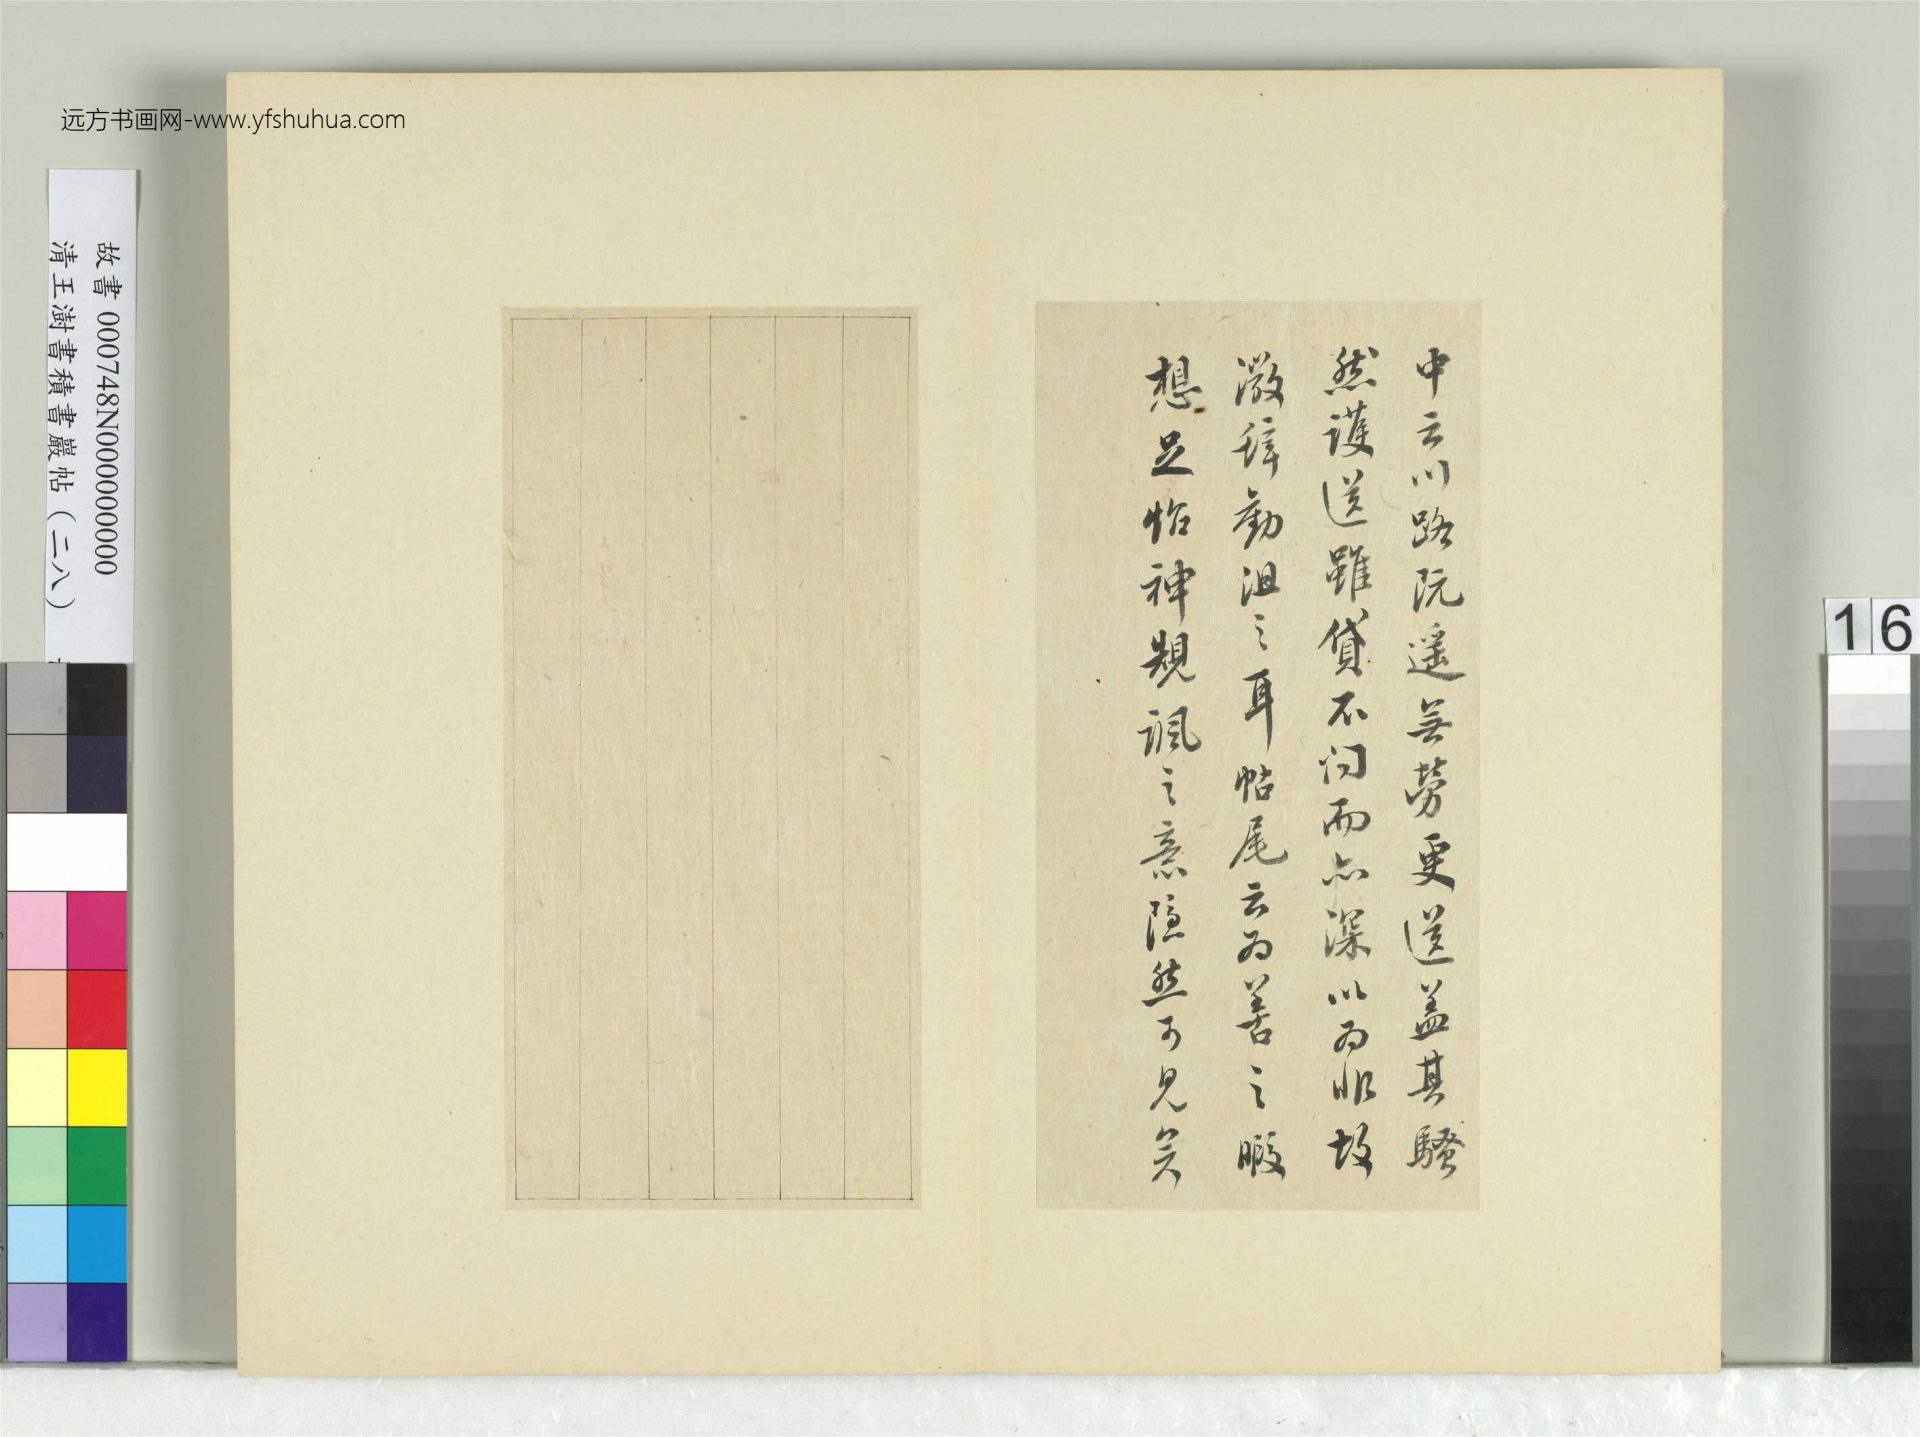 远方书画网-www.yfshuhua.com
故書 000748N000000000
清王澍書積書巖帖（二八）
16
中云川路阮遥无劳更送盖其騷
然護送雖貸不问而亦深以为非故
激辞勸沮之耳帖尾云为善之暇
想足怡神規諷之意隐然可見矣